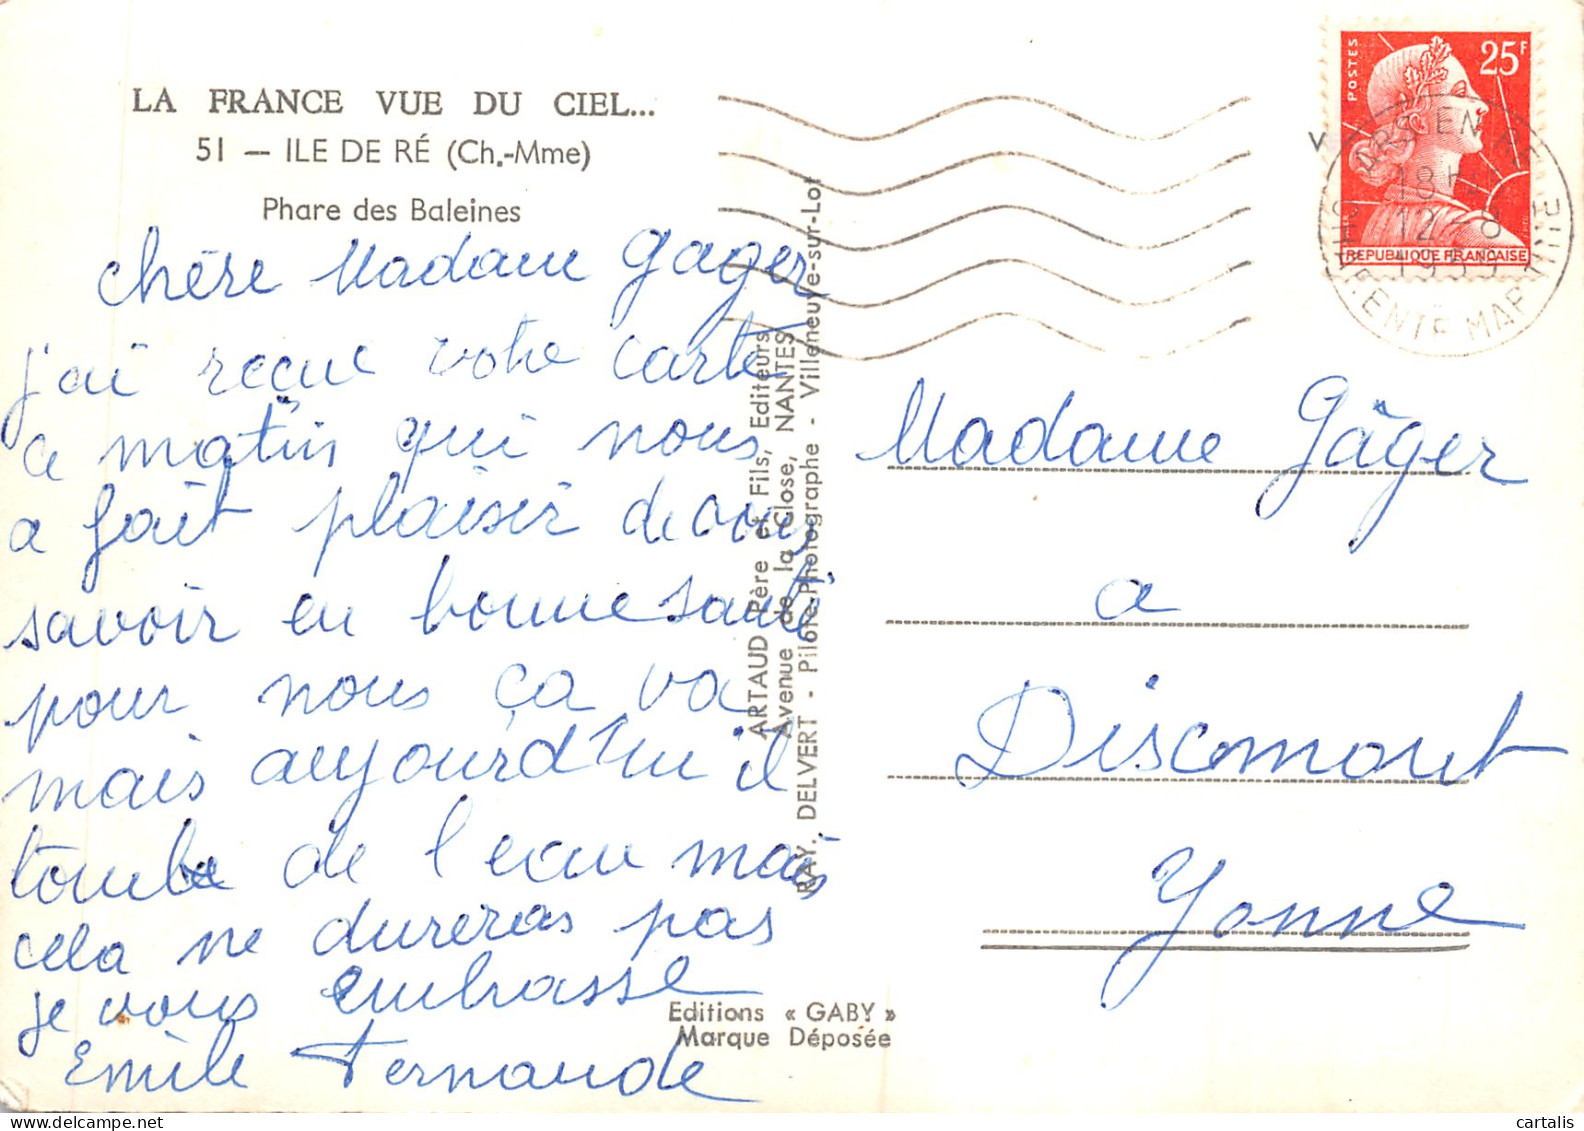 LA FRANCE VUE DU CIEL...
51 — ILE DE RÉ (Ch.-Mme)
Phare des Baleines
chère Madame Gager
j'ai reçue votre carte
ce matin qui nous
a fait plaisir de vous
savoir en bonne santé
pour nous ça va
mais aujourd'hui il
tombe de l'eau mais
cela ne dureras pas
je vous embrasse
Emile Fernande
ARTAUD Père et Fils, Editeurs
Avenue de la Close, NANTES
RAY. DELVERT - Pilote-Photographe - Villeneuve-sur-Lot
Editions « GABY »
Marque Déposée
POSTES
25F
REPUBLIQUE FRANCAISE
ARS EN RE
18H
12-8
CHARENTE MARITIME
Madame Gâger
a
Discmont
Yonne
cartalis